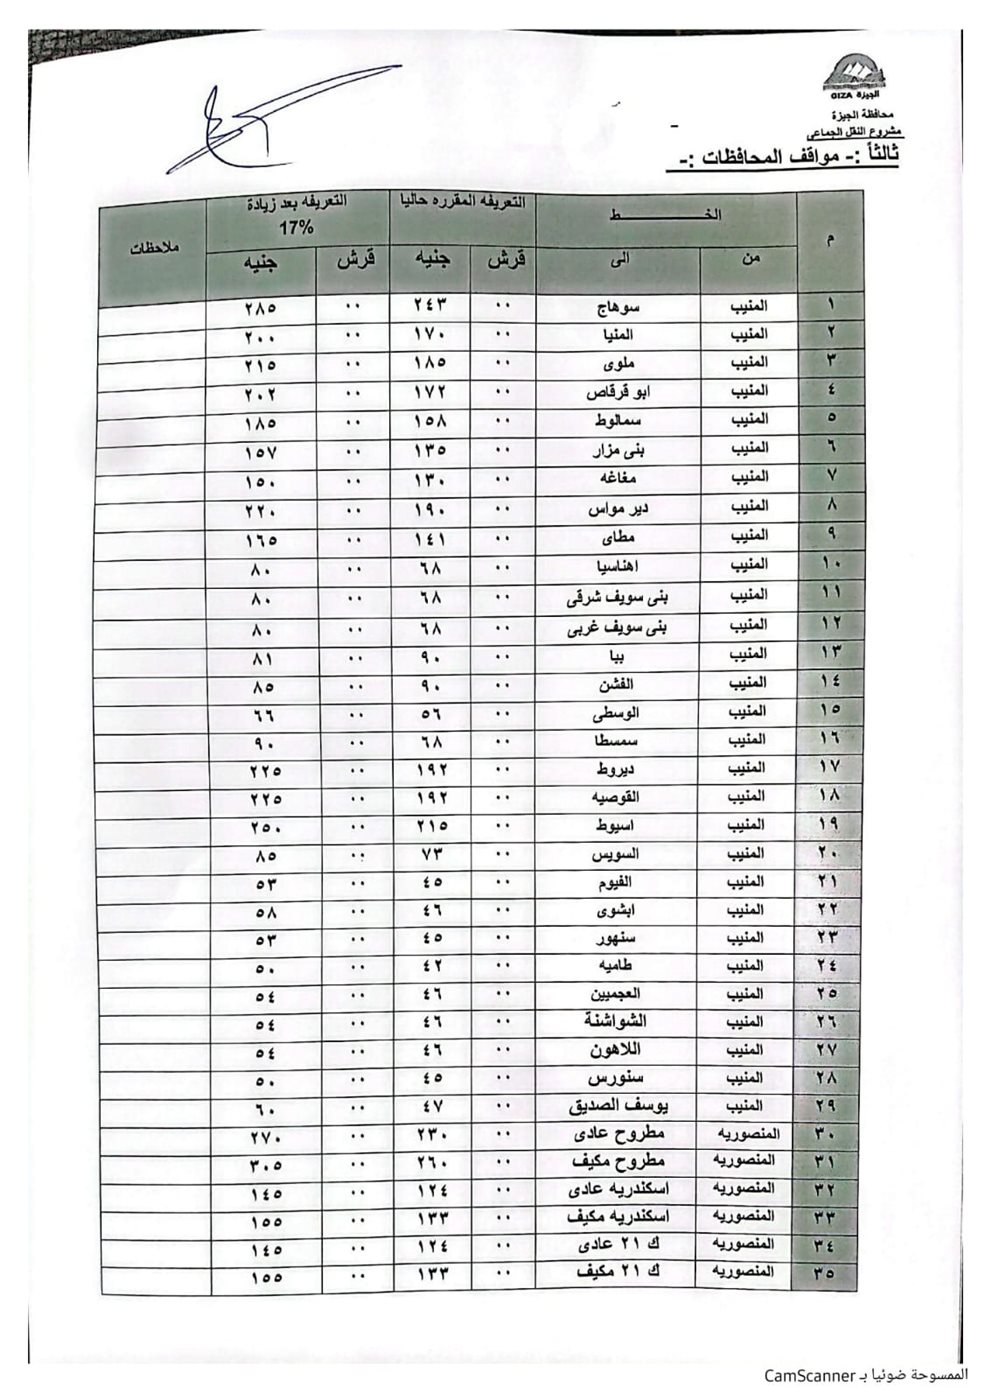 الجيزة GIZA
محافظة الجيزة
مشروع النقل الجماعى
ثالثاً :- مواقف المحافظات :-
م الخـــــــط التعريفه المقرره حاليا التعريفه بعد زيادة 17% ملاحظات
من الى قرش جنيه قرش جنيه
١ المنيب سوهاج ٠٠ ٢٤٣ ٠٠ ٢٨٥
٢ المنيب المنيا ٠٠ ١٧٠ ٠٠ ٢٠٠
٣ المنيب ملوى ٠٠ ١٨٥ ٠٠ ٢١٥
٤ المنيب ابو قرقاص ٠٠ ١٧٢ ٠٠ ٢٠٢
٥ المنيب سمالوط ٠٠ ١٥٨ ٠٠ ١٨٥
٦ المنيب بنى مزار ٠٠ ١٣٥ ٠٠ ١٥٧
٧ المنيب مغاغه ٠٠ ١٣٠ ٠٠ ١٥٠
٨ المنيب دير مواس ٠٠ ١٩٠ ٠٠ ٢٢٠
٩ المنيب مطاى ٠٠ ١٤١ ٠٠ ١٦٥
١٠ المنيب اهناسيا ٠٠ ٦٨ ٠٠ ٨٠
١١ المنيب بنى سويف شرقى ٠٠ ٦٨ ٠٠ ٨٠
١٢ المنيب بنى سويف غربى ٠٠ ٦٨ ٠٠ ٨٠
١٣ المنيب ببا ٠٠ ٩٠ ٠٠ ٨١
١٤ المنيب الفشن ٠٠ ٩٠ ٠٠ ٨٥
١٥ المنيب الوسطى ٠٠ ٥٦ ٠٠ ٦٦
١٦ المنيب سمسطا ٠٠ ٦٨ ٠٠ ٩٠
١٧ المنيب ديروط ٠٠ ١٩٢ ٠٠ ٢٢٥
١٨ المنيب القوصيه ٠٠ ١٩٢ ٠٠ ٢٢٥
١٩ المنيب اسيوط ٠٠ ٢١٥ ٠٠ ٢٥٠
٢٠ المنيب السويس ٠٠ ٧٣ ٠٠ ٨٥
٢١ المنيب الفيوم ٠٠ ٤٥ ٠٠ ٥٣
٢٢ المنيب ابشوى ٠٠ ٤٦ ٠٠ ٥٨
٢٣ المنيب سنهور ٠٠ ٤٥ ٠٠ ٥٣
٢٤ المنيب طاميه ٠٠ ٤٢ ٠٠ ٥٠
٢٥ المنيب العجميين ٠٠ ٤٦ ٠٠ ٥٤
٢٦ المنيب الشواشنة ٠٠ ٤٦ ٠٠ ٥٤
٢٧ المنيب اللاهون ٠٠ ٤٦ ٠٠ ٥٤
٢٨ المنيب سنورس ٠٠ ٤٥ ٠٠ ٥٠
٢٩ المنيب يوسف الصديق ٠٠ ٤٧ ٠٠ ٦٠
٣٠ المنصوريه مطروح عادى ٠٠ ٢٣٠ ٠٠ ٢٧٠
٣١ المنصوريه مطروح مكيف ٠٠ ٢٦٠ ٠٠ ٣٠٥
٣٢ المنصوريه اسكندريه عادى ٠٠ ١٢٤ ٠٠ ١٤٥
٣٣ المنصوريه اسكندريه مكيف ٠٠ ١٣٣ ٠٠ ١٥٥
٣٤ المنصوريه ك ٢١ عادى ٠٠ ١٢٤ ٠٠ ١٤٥
٣٥ المنصوريه ك ٢١ مكيف ٠٠ ١٣٣ ٠٠ ١٥٥
الممسوحة ضوئيا بـ CamScanner